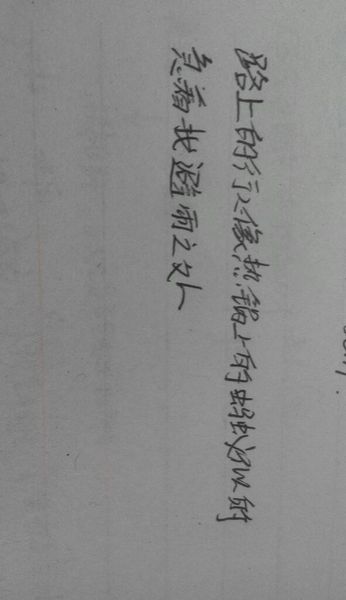 路上的行人像热锅上的蚂蚁似的
急着找避雨之处